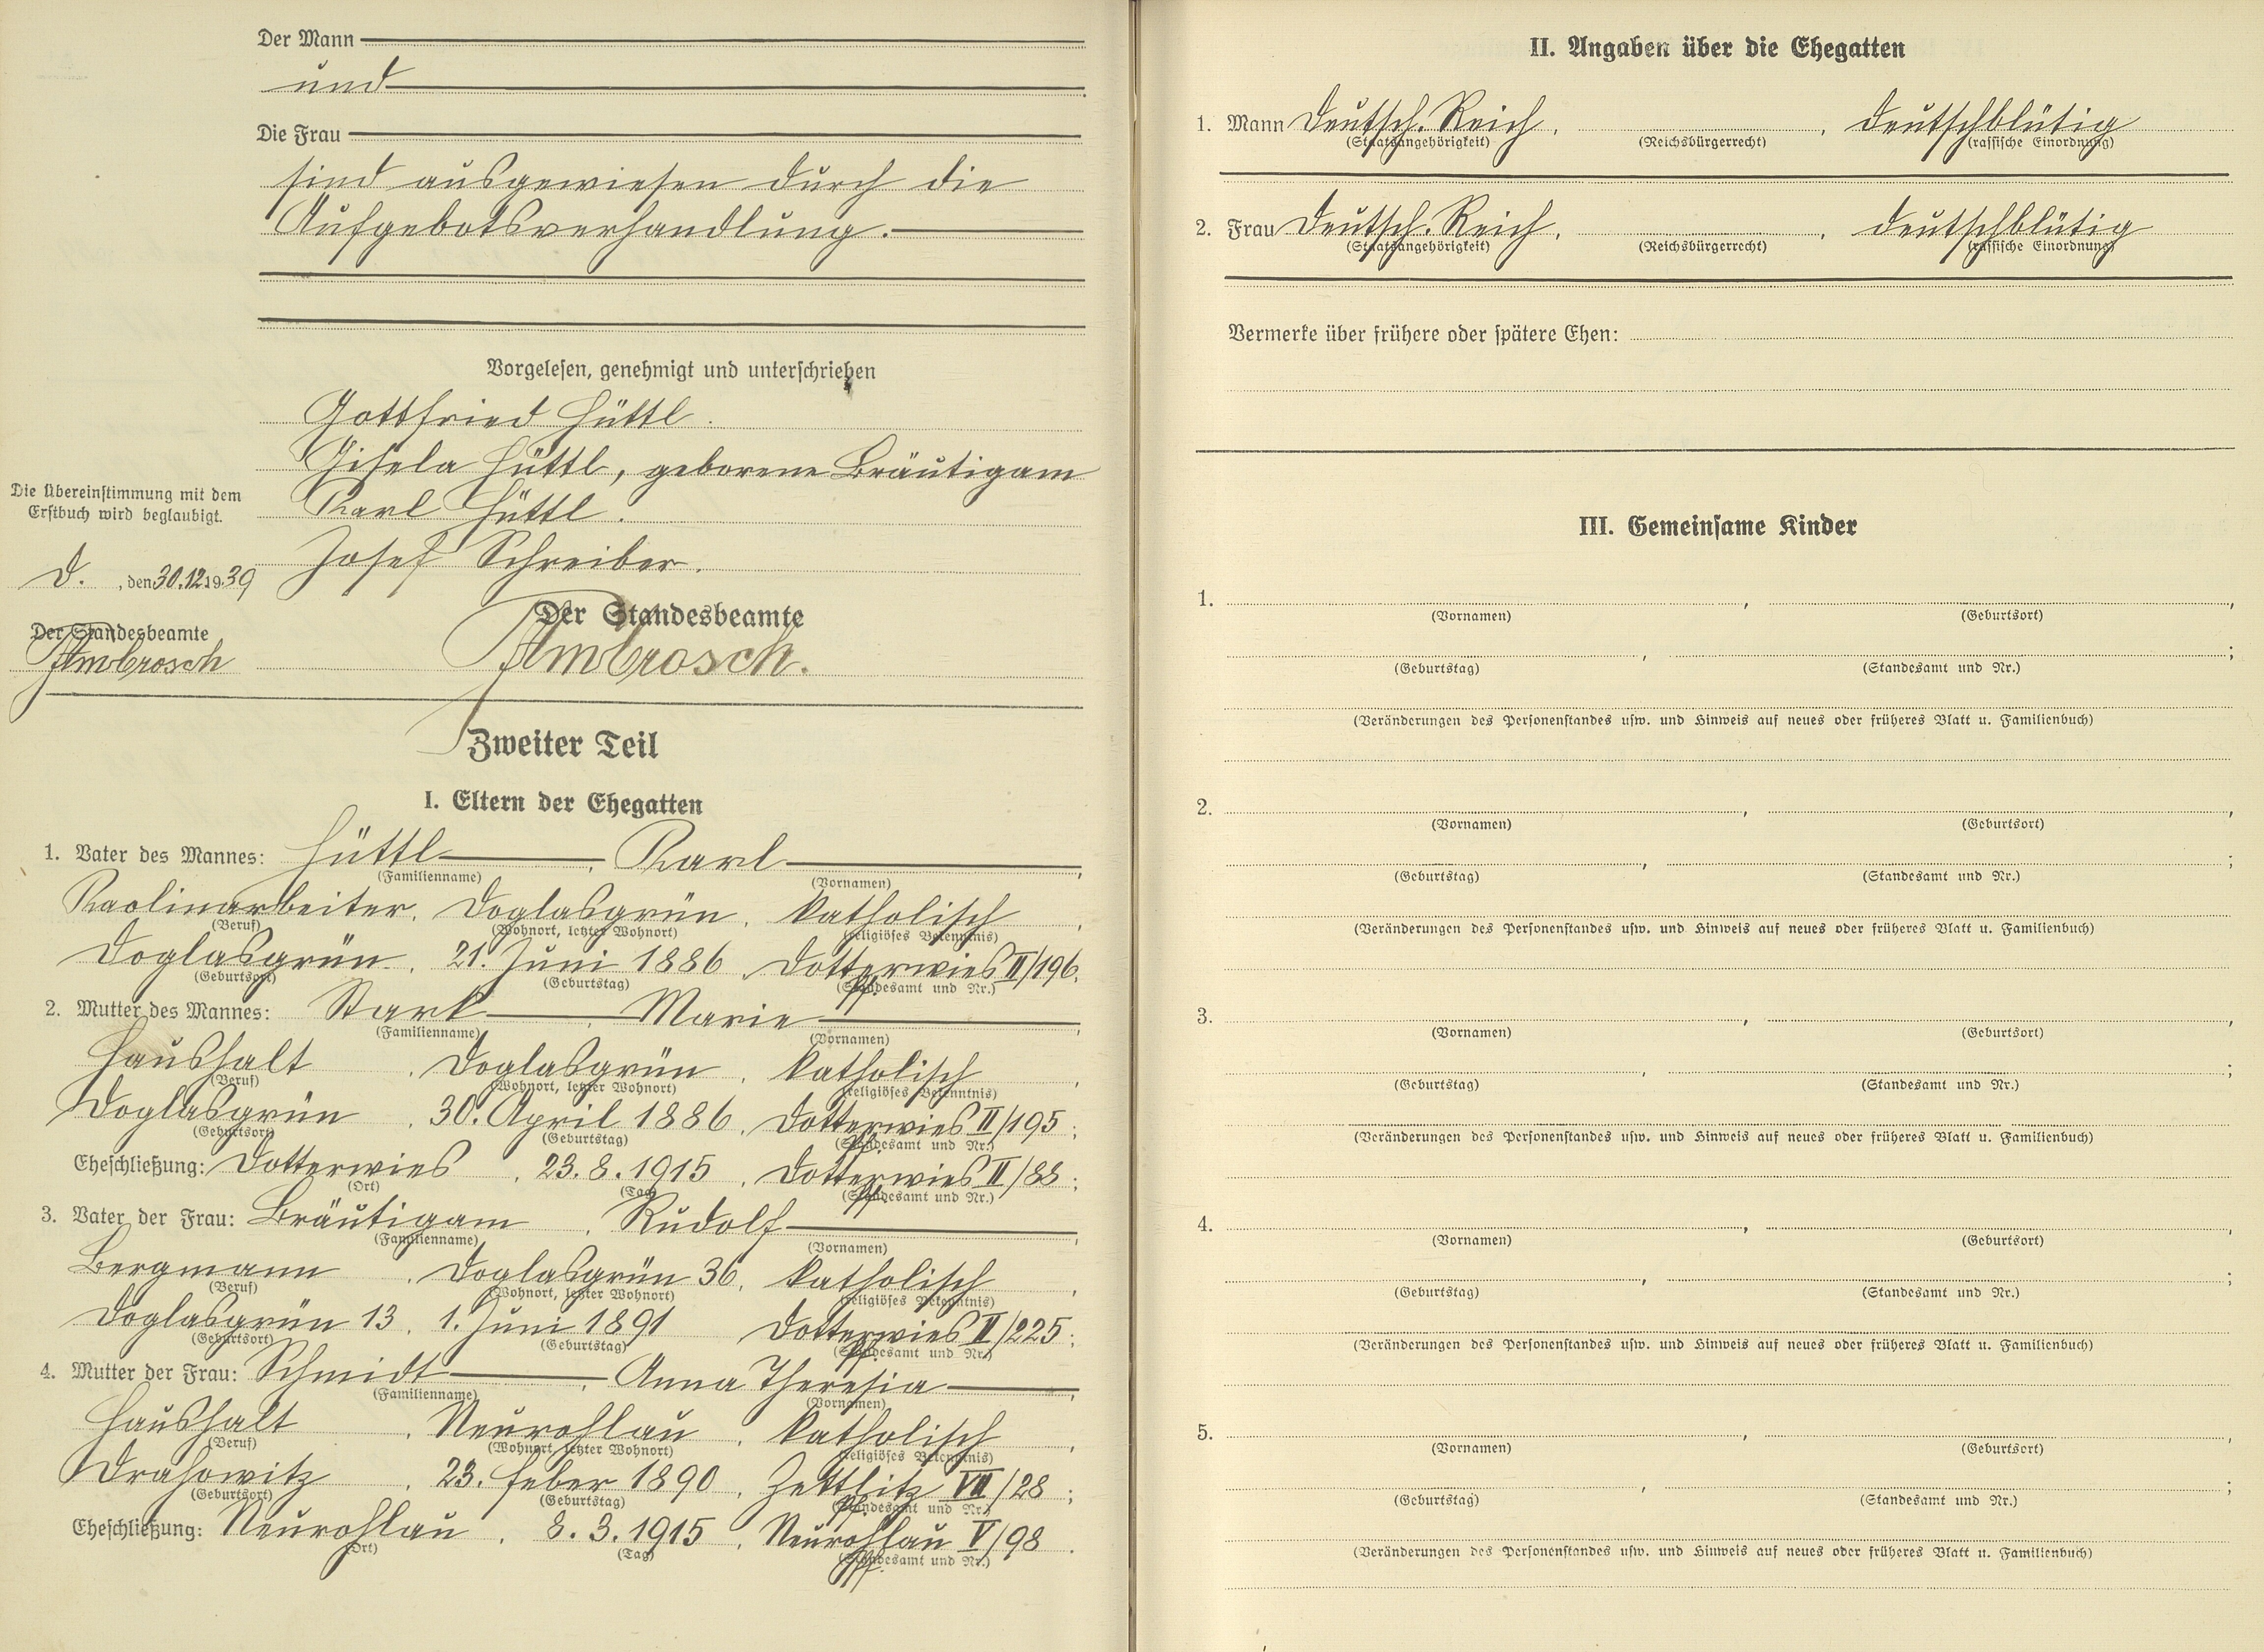 Der Mann
und
Die Frau
sind ausgewiesen durch die
Aufgebotsverhandlung.
Vorgelesen, genehmigt und unterschrieben
Gottfried Hüttl.
Gisela Hüttl, geborene Bräutigam
Karl Hüttl.
Josef Schreiber.
Die Übereinstimmung mit dem
Erstbuch wird beglaubigt.
D. , den 30.12.1939
Der Standesbeamte
Ambrosch
Der Standesbeamte
Ambrosch.
Zweiter Teil
I. Eltern der Ehegatten
1. Vater des Mannes: Hüttl, Karl
(Familienname) (Vornamen)
Kaolinarbeiter, Doglasgrün, katholisch,
(Beruf) (Wohnort, letzter Wohnort) (religiöses Bekenntnis)
Doglasgrün, 21. Juni 1886, Dotterwies II/196.
(Geburtsort) (Geburtstag) (Standesamt und Nr.)
Pf.
2. Mutter des Mannes: Stark, Marie,
(Familienname) (Vornamen)
Haushalt, Doglasgrün, katholisch,
(Beruf) (Wohnort, letzter Wohnort) (religiöses Bekenntnis)
Doglasgrün, 30. April 1886, Dotterwies II/195;
(Geburtsort) (Geburtstag) (Standesamt und Nr.)
Pf.
Eheschließung: Dotterwies, 23.8.1915, Dotterwies II/88;
(Ort) (Tag) (Standesamt und Nr.)
Pf.
3. Vater der Frau: Bräutigam, Rudolf,
(Familienname) (Vornamen)
Bergmann, Doglasgrün 36, katholisch,
(Beruf) (Wohnort, letzter Wohnort) (religiöses Bekenntnis)
Doglasgrün 13, 1. Juni 1891 Dotterwies II/225;
(Geburtsort) (Geburtstag) (Standesamt und Nr.)
Pf.
4. Mutter der Frau: Schmidt, Anna Theresia,
(Familienname) (Vornamen)
Haushalt, Neurohlau, katholisch,
(Beruf) (Wohnort, letzter Wohnort) (religiöses Bekenntnis)
Drahowitz, 23. Feber 1890, Zettlitz VII/28;
(Geburtsort) (Geburtstag) (Standesamt und Nr.)
Pf.
Eheschließung: Neurohlau, 8.3.1915, Neurohlau V/98.
(Ort) (Tag) (Standesamt und Nr.)
II. Angaben über die Ehegatten
1. Mann Deutsch. Reich, , deutschblütig
(Staatsangehörigkeit) (Reichsbürgerrecht) (rassische Einordnung)
2. Frau Deutsch. Reich, , deutschblütig
(Staatsangehörigkeit) (Reichsbürgerrecht) (rassische Einordnung)
Vermerke über frühere oder spätere Ehen:
III. Gemeinsame Kinder
1. , ,
(Vornamen) (Geburtsort)
, ;
(Geburtstag) (Standesamt und Nr.)
(Veränderungen des Personenstandes usw. und Hinweis auf neues oder früheres Blatt u. Familienbuch)
2. , ,
(Vornamen) (Geburtsort)
, ;
(Geburtstag) (Standesamt und Nr.)
(Veränderungen des Personenstandes usw. und Hinweis auf neues oder früheres Blatt u. Familienbuch)
3. , ,
(Vornamen) (Geburtsort)
, ;
(Geburtstag) (Standesamt und Nr.)
(Veränderungen des Personenstandes usw. und Hinweis auf neues oder früheres Blatt u. Familienbuch)
4. , ,
(Vornamen) (Geburtsort)
, ;
(Geburtstag) (Standesamt und Nr.)
(Veränderungen des Personenstandes usw. und Hinweis auf neues oder früheres Blatt u. Familienbuch)
5. , ,
(Vornamen) (Geburtsort)
, ;
(Geburtstag) (Standesamt und Nr.)
(Veränderungen des Personenstandes usw. und Hinweis auf neues oder früheres Blatt u. Familienbuch)